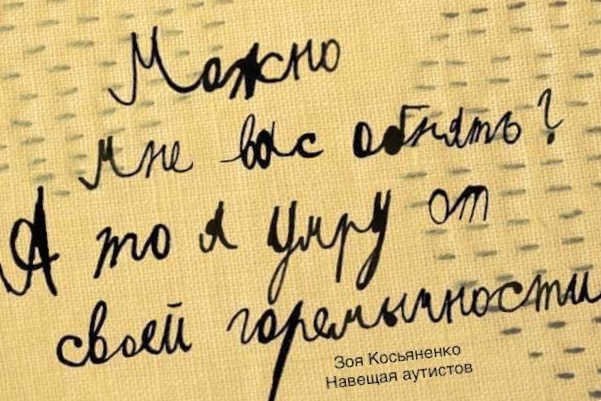 Можно
мне вас обнять?
А то я умру от
своей горемычности
Зоя Косьяненко
Навещая аутистов